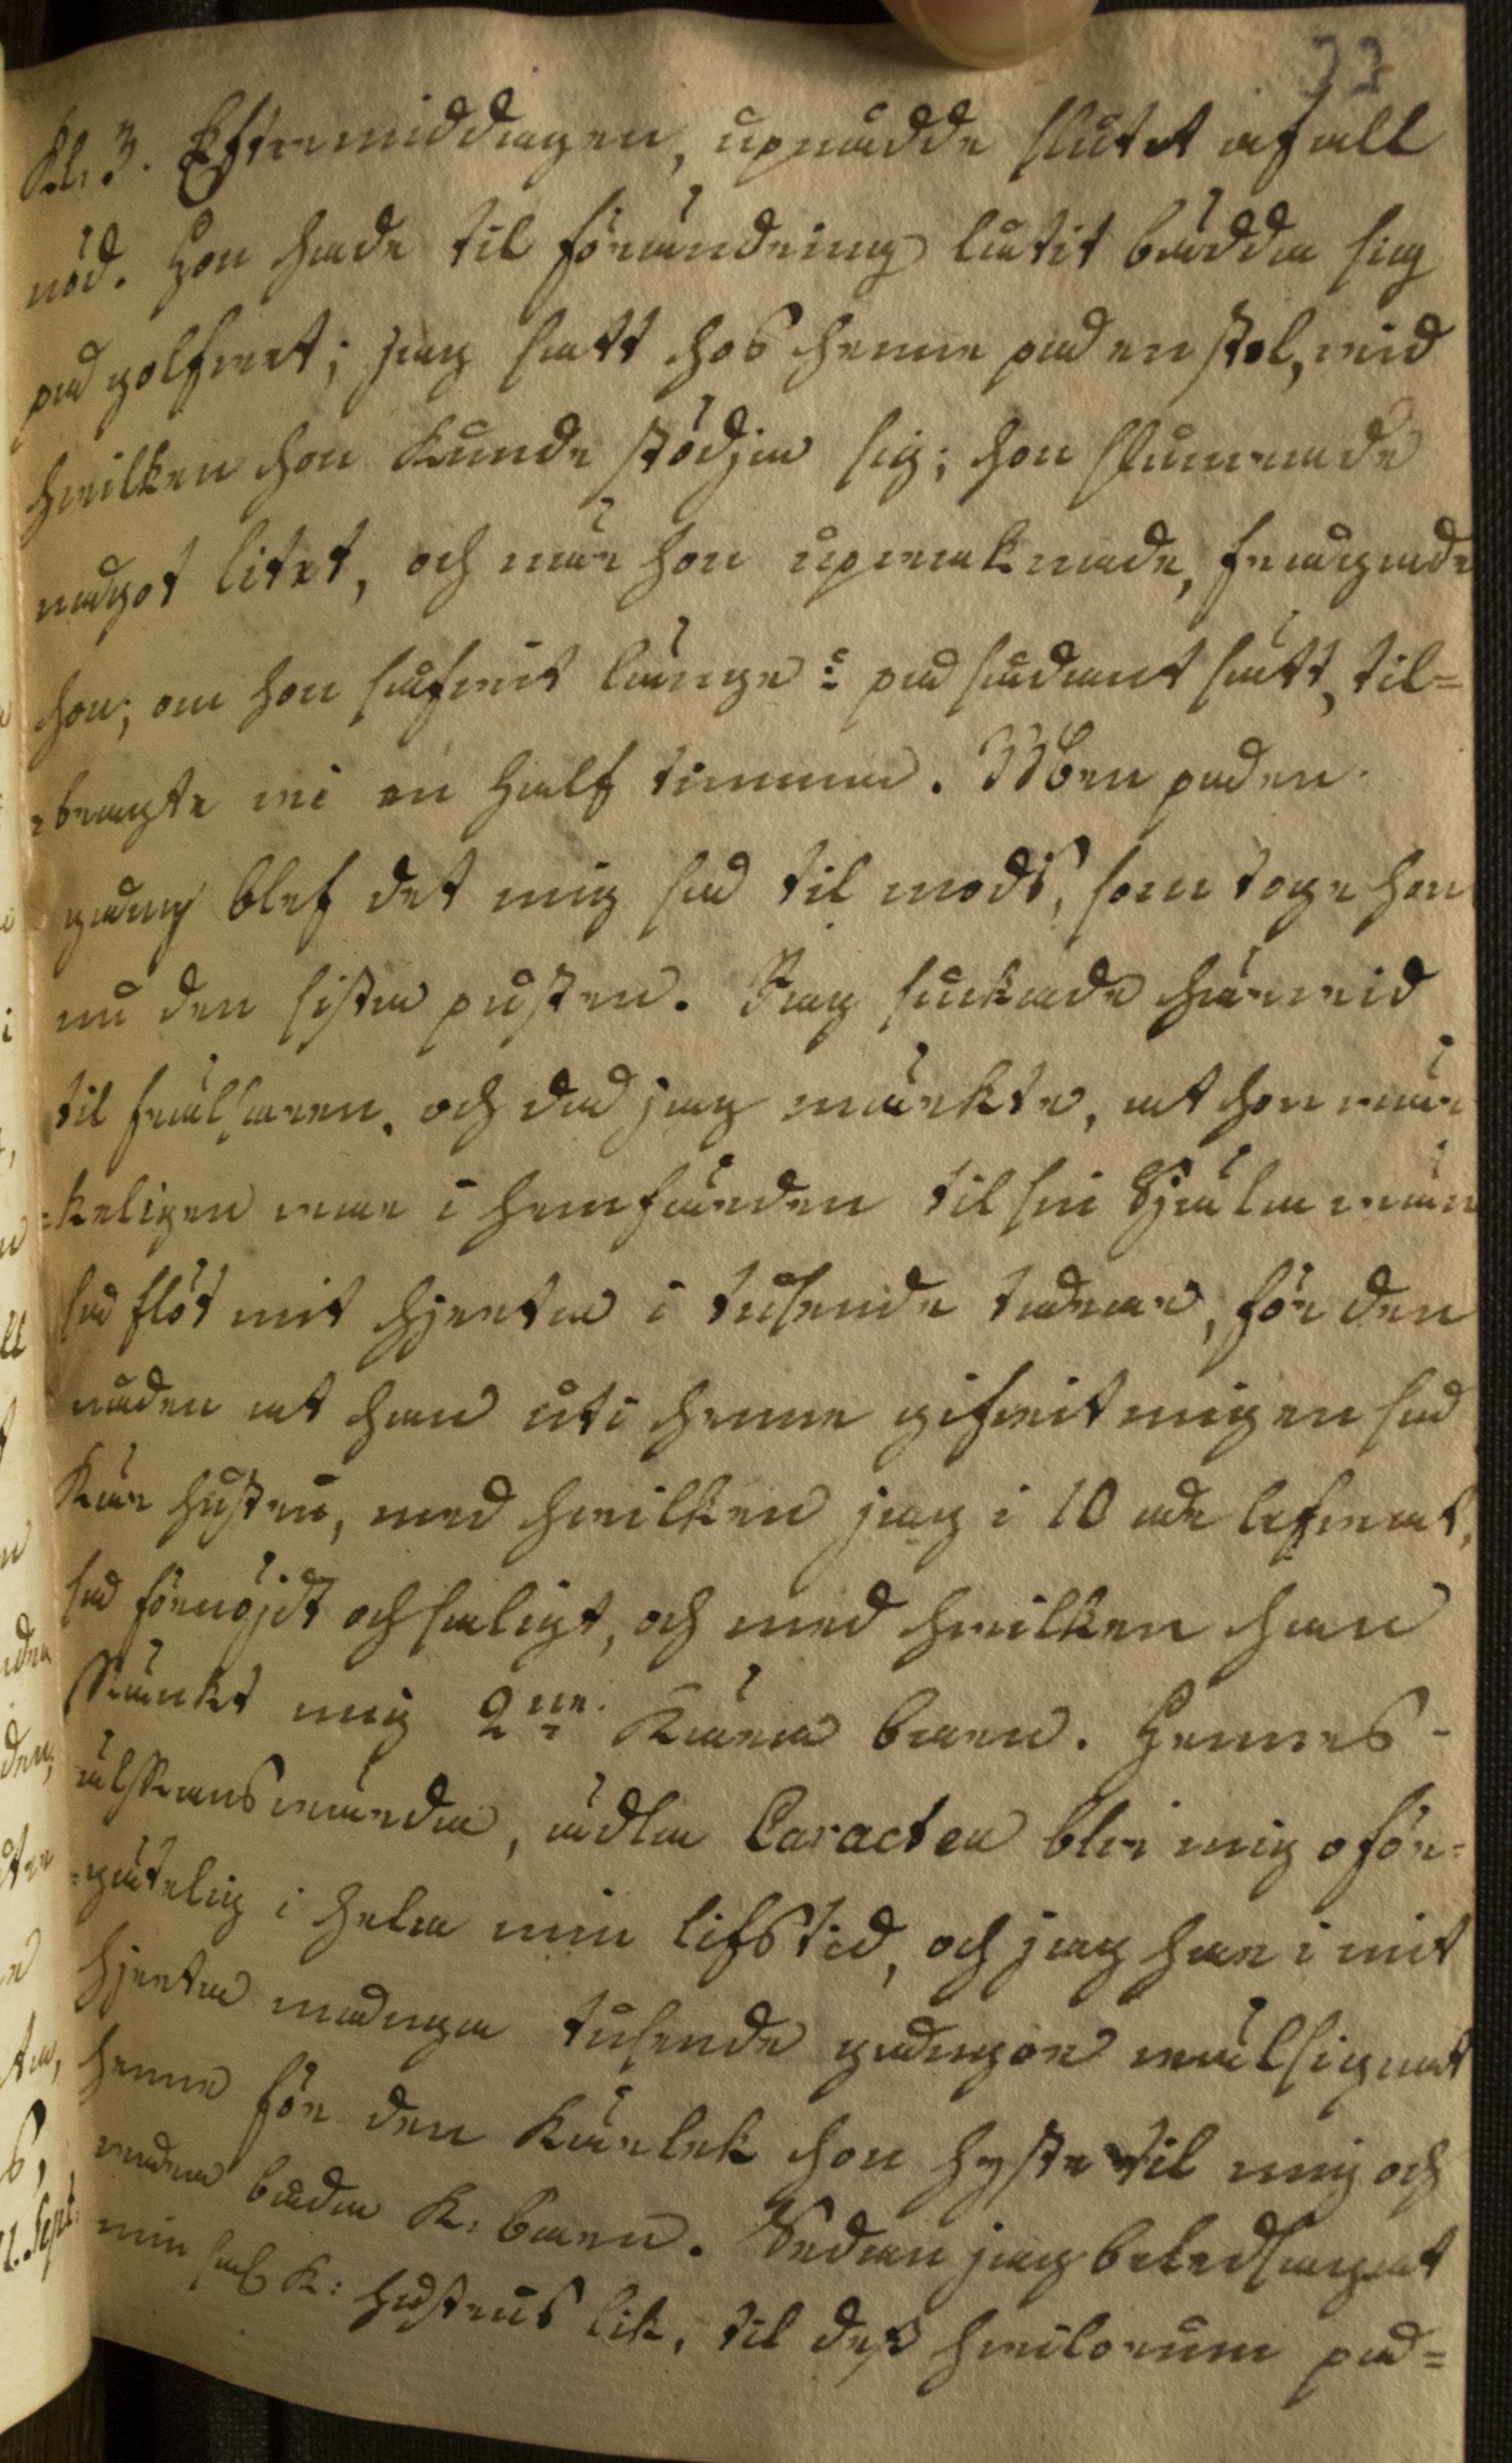 22
Kl. 3. Eftermiddagen, upnådde slutet af all
nöd. Hon hade til förändring låtit bädda sig
på golfvet; jag satt hos henne på en stol, vid
hvilken hon kunde stödja sig; hon slumrade
något litet, och när hon upvaknade, frågade
hon; om hon såfvit länge: på sådant sätt, til=
=bragte vi en half timma. Men på en
gång blef det mig så til mods, som toge hon
nu den sista pusten. Jag suckade härvid
til frälsaren. och då jag märkte, at hon vär
=keligen var i hemfärden til sin Själavän
så flöt mit hjerta i tusende tårar, för den
nåden at han uti henne gifvit mig en så
Kär hustru, med hvilken jag i 10 år lefvat,
så förnöjdt och saligt, och med hvilken han
skänkt mig 2ne Kära barn. Hennes-
älskansvärda, ädla Caracter blir mig oför=
=gätelig i hela min lifstid, och jag har i mit
hjerta många tusende gångor välsignat
henne för den Kärlek hon hyste til mig och
våra båda K: barn. Sedan jag beledsagat
min sal K: hustrus lik, til dess hvilorum på=